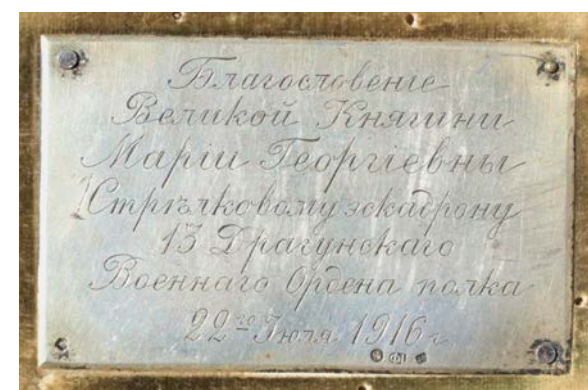 Благословенiе
Великой Княгини
Марiи Георгiевны
1 Стрѣлковому эскадрону
13 Драгунскаго
Военнаго Ордена полка
22го Iюля 1916 г